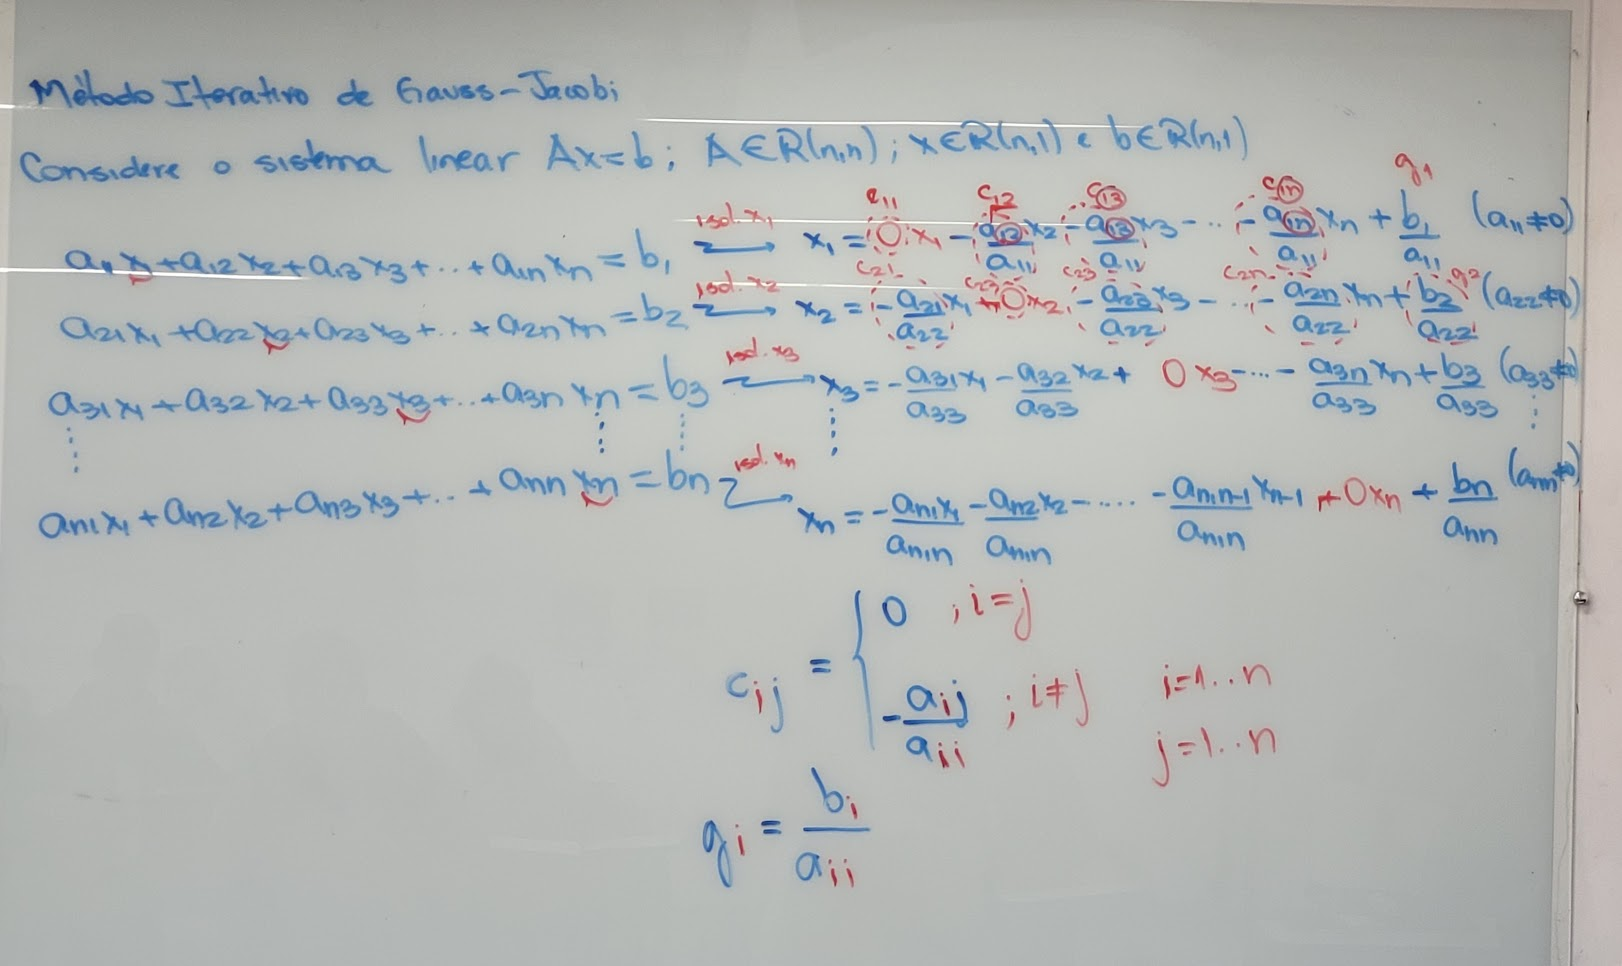 Método Iterativo de Gauss-Jacobi
Considere o sistema linear Ax=b; A∈R(n,n); x∈R(n,1) e b∈R(n,1)
g1
c11 c12 c13 c1n
a11x1+a12x2+a13x3+...+a1nxn=b1 isol. x1 → x1 = 0 x1 - a12/a11 x2 - a13/a11 x3 - ... - a1n/a11 xn + b1/a11 (a11≠0)
c21 c23 c23 c2n g2
a21x1+a22x2+a23x3+...+a2nxn=b2 isol. x2 → x2 = -a21/a22 x1 + 0x2 - a23/a22 x3 - ... - a2n/a22 xn + b2/a22 (a22≠0)
a31x1+a32x2+a33x3+...+a3nxn=b3 isol. x3 → x3 = -a31/a33 x1 - a32/a33 x2 + 0x3 - ... - a3n/a33 xn + b3/a33 (a33≠0)
an1x1+an2x2+an3x3+...+annxn=bn isol. xn → xn = -an1x1/an,n - an2/an,n x2 - ..... - an,n-1/an,n xn-1 + 0xn + bn/ann (ann≠0)
cij = { 0 , i=j
-aij/aii ; i≠j i=1..n
j=1..n
gi = bi/aii